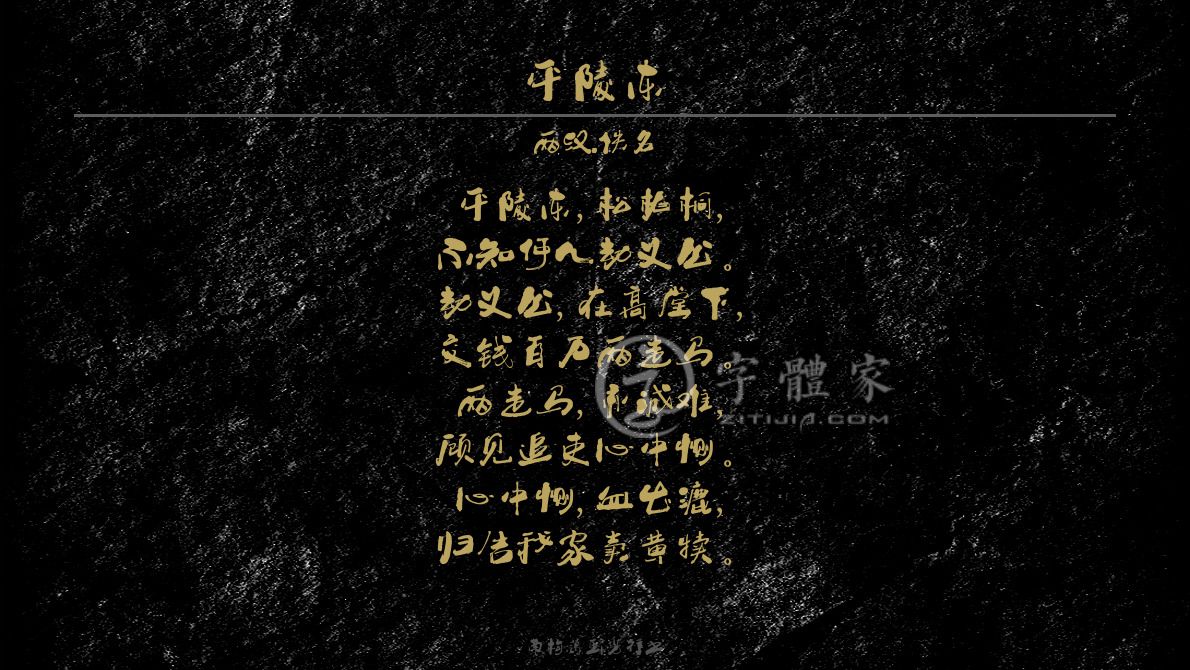 平陵东
两汉.佚名
平陵东，松柏桐，
不知何人劫义公。
劫义公，在高堂下，
交钱百万两走马。
两走马，亦诚难，
顾见追吏心中恻。
心中恻，血出漉，
归告我家卖黄犊。
字體家
ZITIJIA.COM